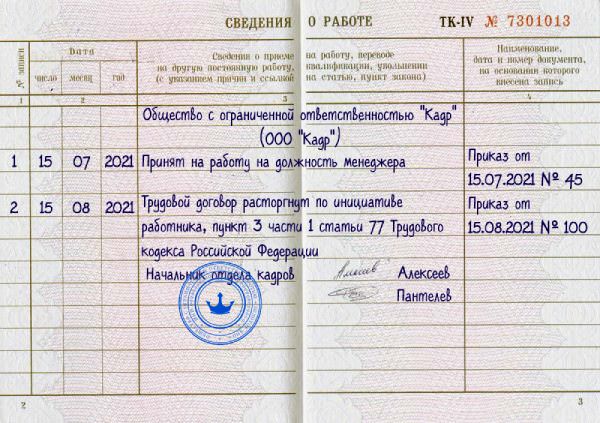 СВЕДЕНИЯ О РАБОТЕ ТК-IV № 7301013
№ записи
Дата
число месяц год
Сведения о приеме на работу, переводе
на другую постоянную работу, квалификации, увольнении
(с указанием причин и ссылкой на статью, пункт закона)
Наименование,
дата и номер документа,
на основании которого
внесена запись
1 2 3 4
Общество с ограниченной ответственностью "Кадр"
(ООО "Кадр")
1 15 07 2021 Принят на работу на должность менеджера Приказ от
15.07.2021 № 45
2 15 08 2021 Трудовой договор расторгнут по инициативе Приказ от
работника, пункт 3 части 1 статьи 77 Трудового 15.08.2021 № 100
кодекса Российской Федерации
Начальник отдела кадров Алексеев
Пантелев
2 3